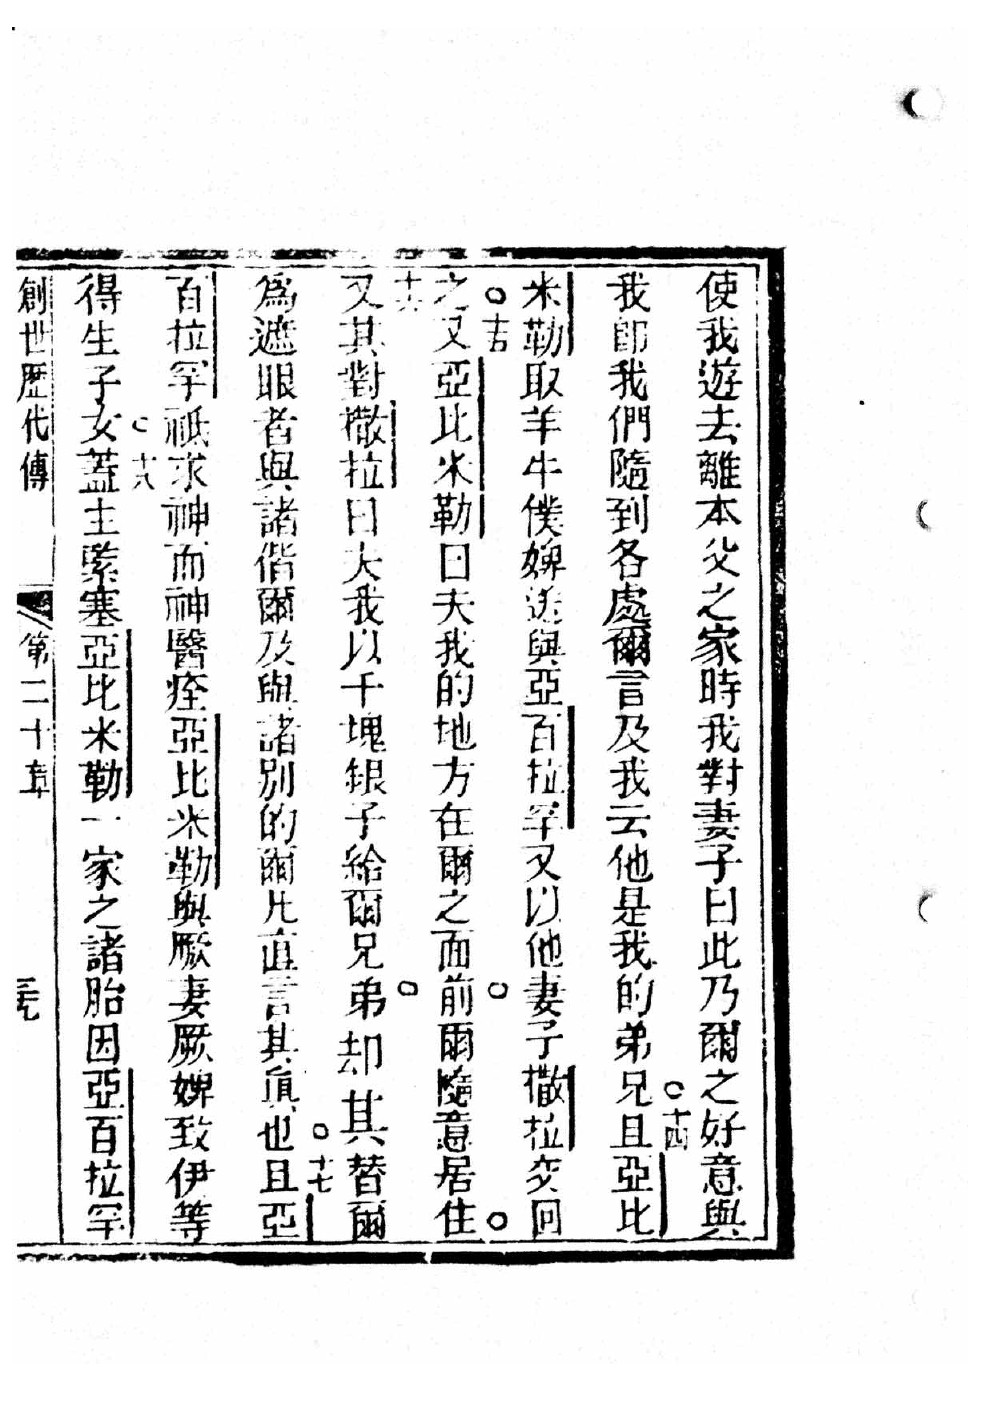 使我遊去離本父之家時我對妻子曰此乃爾之好意與
我卽我們隨到各處爾言及我云他是我的弟兄○十四且亞比
米勒取羊牛僕婢送與亞百拉罕又以他妻子撒拉交回
之○十五又亞比米勒曰夫我的地方在爾之面前○爾隨意居住○
十六又其對撒拉曰夫我以千塊銀子給爾兄弟○却其替爾
爲遮眼者與諸偕爾及與諸別的爾凡直言其眞也○十七且亞
百拉罕祇求神而神醫痊亞比米勒與厥妻厥婢致伊等
得生子女○十八蓋主緊塞亞比米勒一家之諸胎因亞百拉罕
創世歷代傳 第二十章 三十九